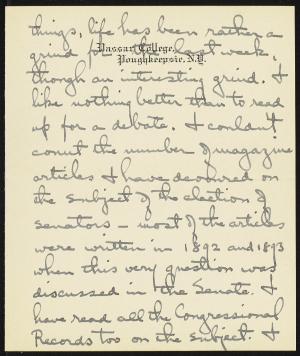 things, life has been rather a
Vassar College,
grind for the last week,
Poughkeepsie, N.Y.
though an interesting grind. I
like nothing better than to read
up for a debate. I couldn't
count the number of magazine
articles I have devoured on
the subject of the election of
senators - most of the articles
were written in 1892 and 1893
when this very question was
discussed in the Senate. I
have read all the Congressional
Records too on the subject. I